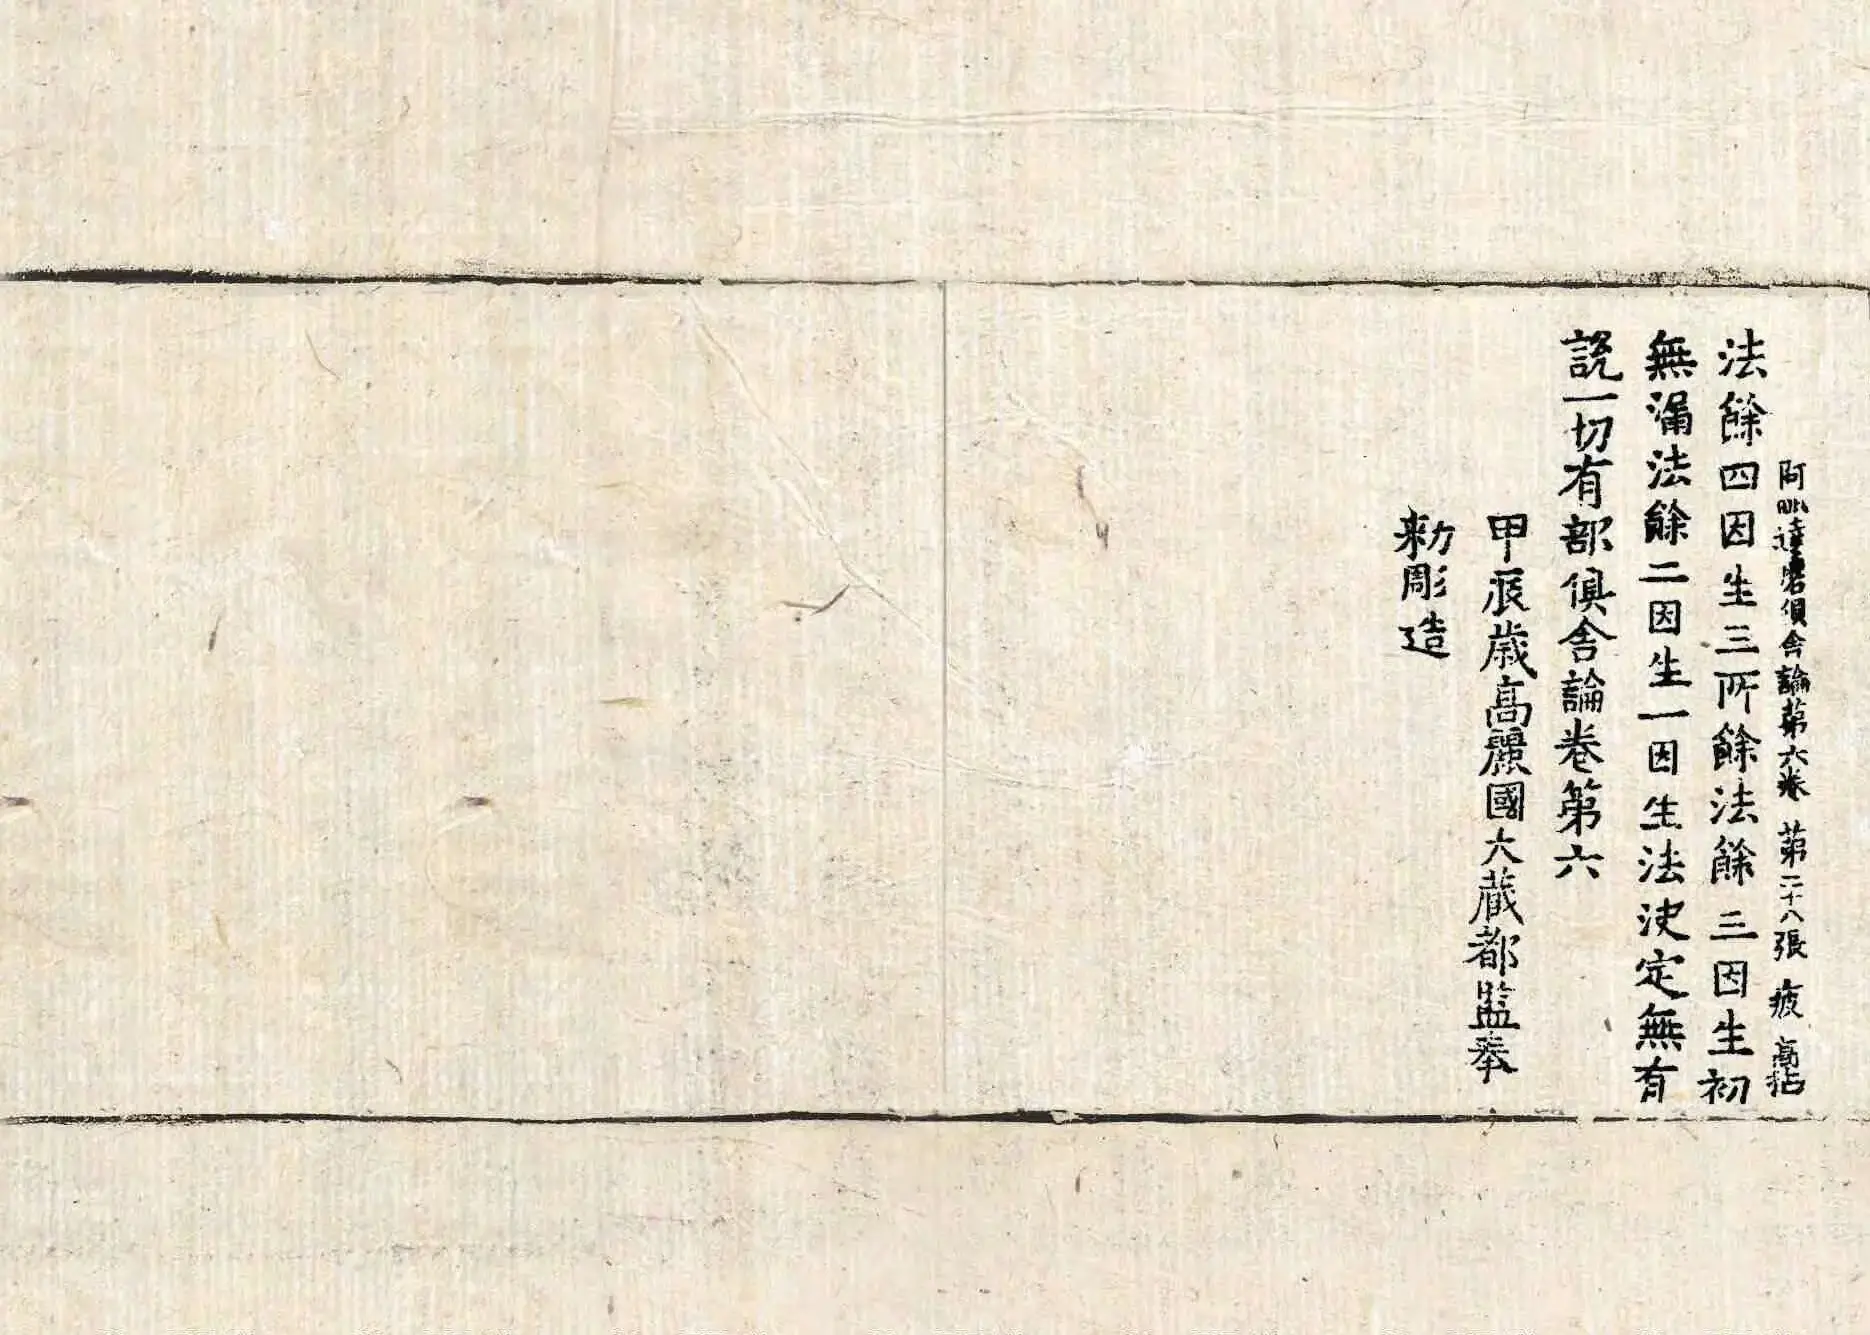 阿毗達磨俱舍論第六卷 第二十八張 疲 高祜
法餘四因生三所餘法餘三因生初
無漏法餘二因生一因生法決定無有
說一切有部俱舍論卷第六
甲辰歲高麗國大藏都監奉
勑彫造